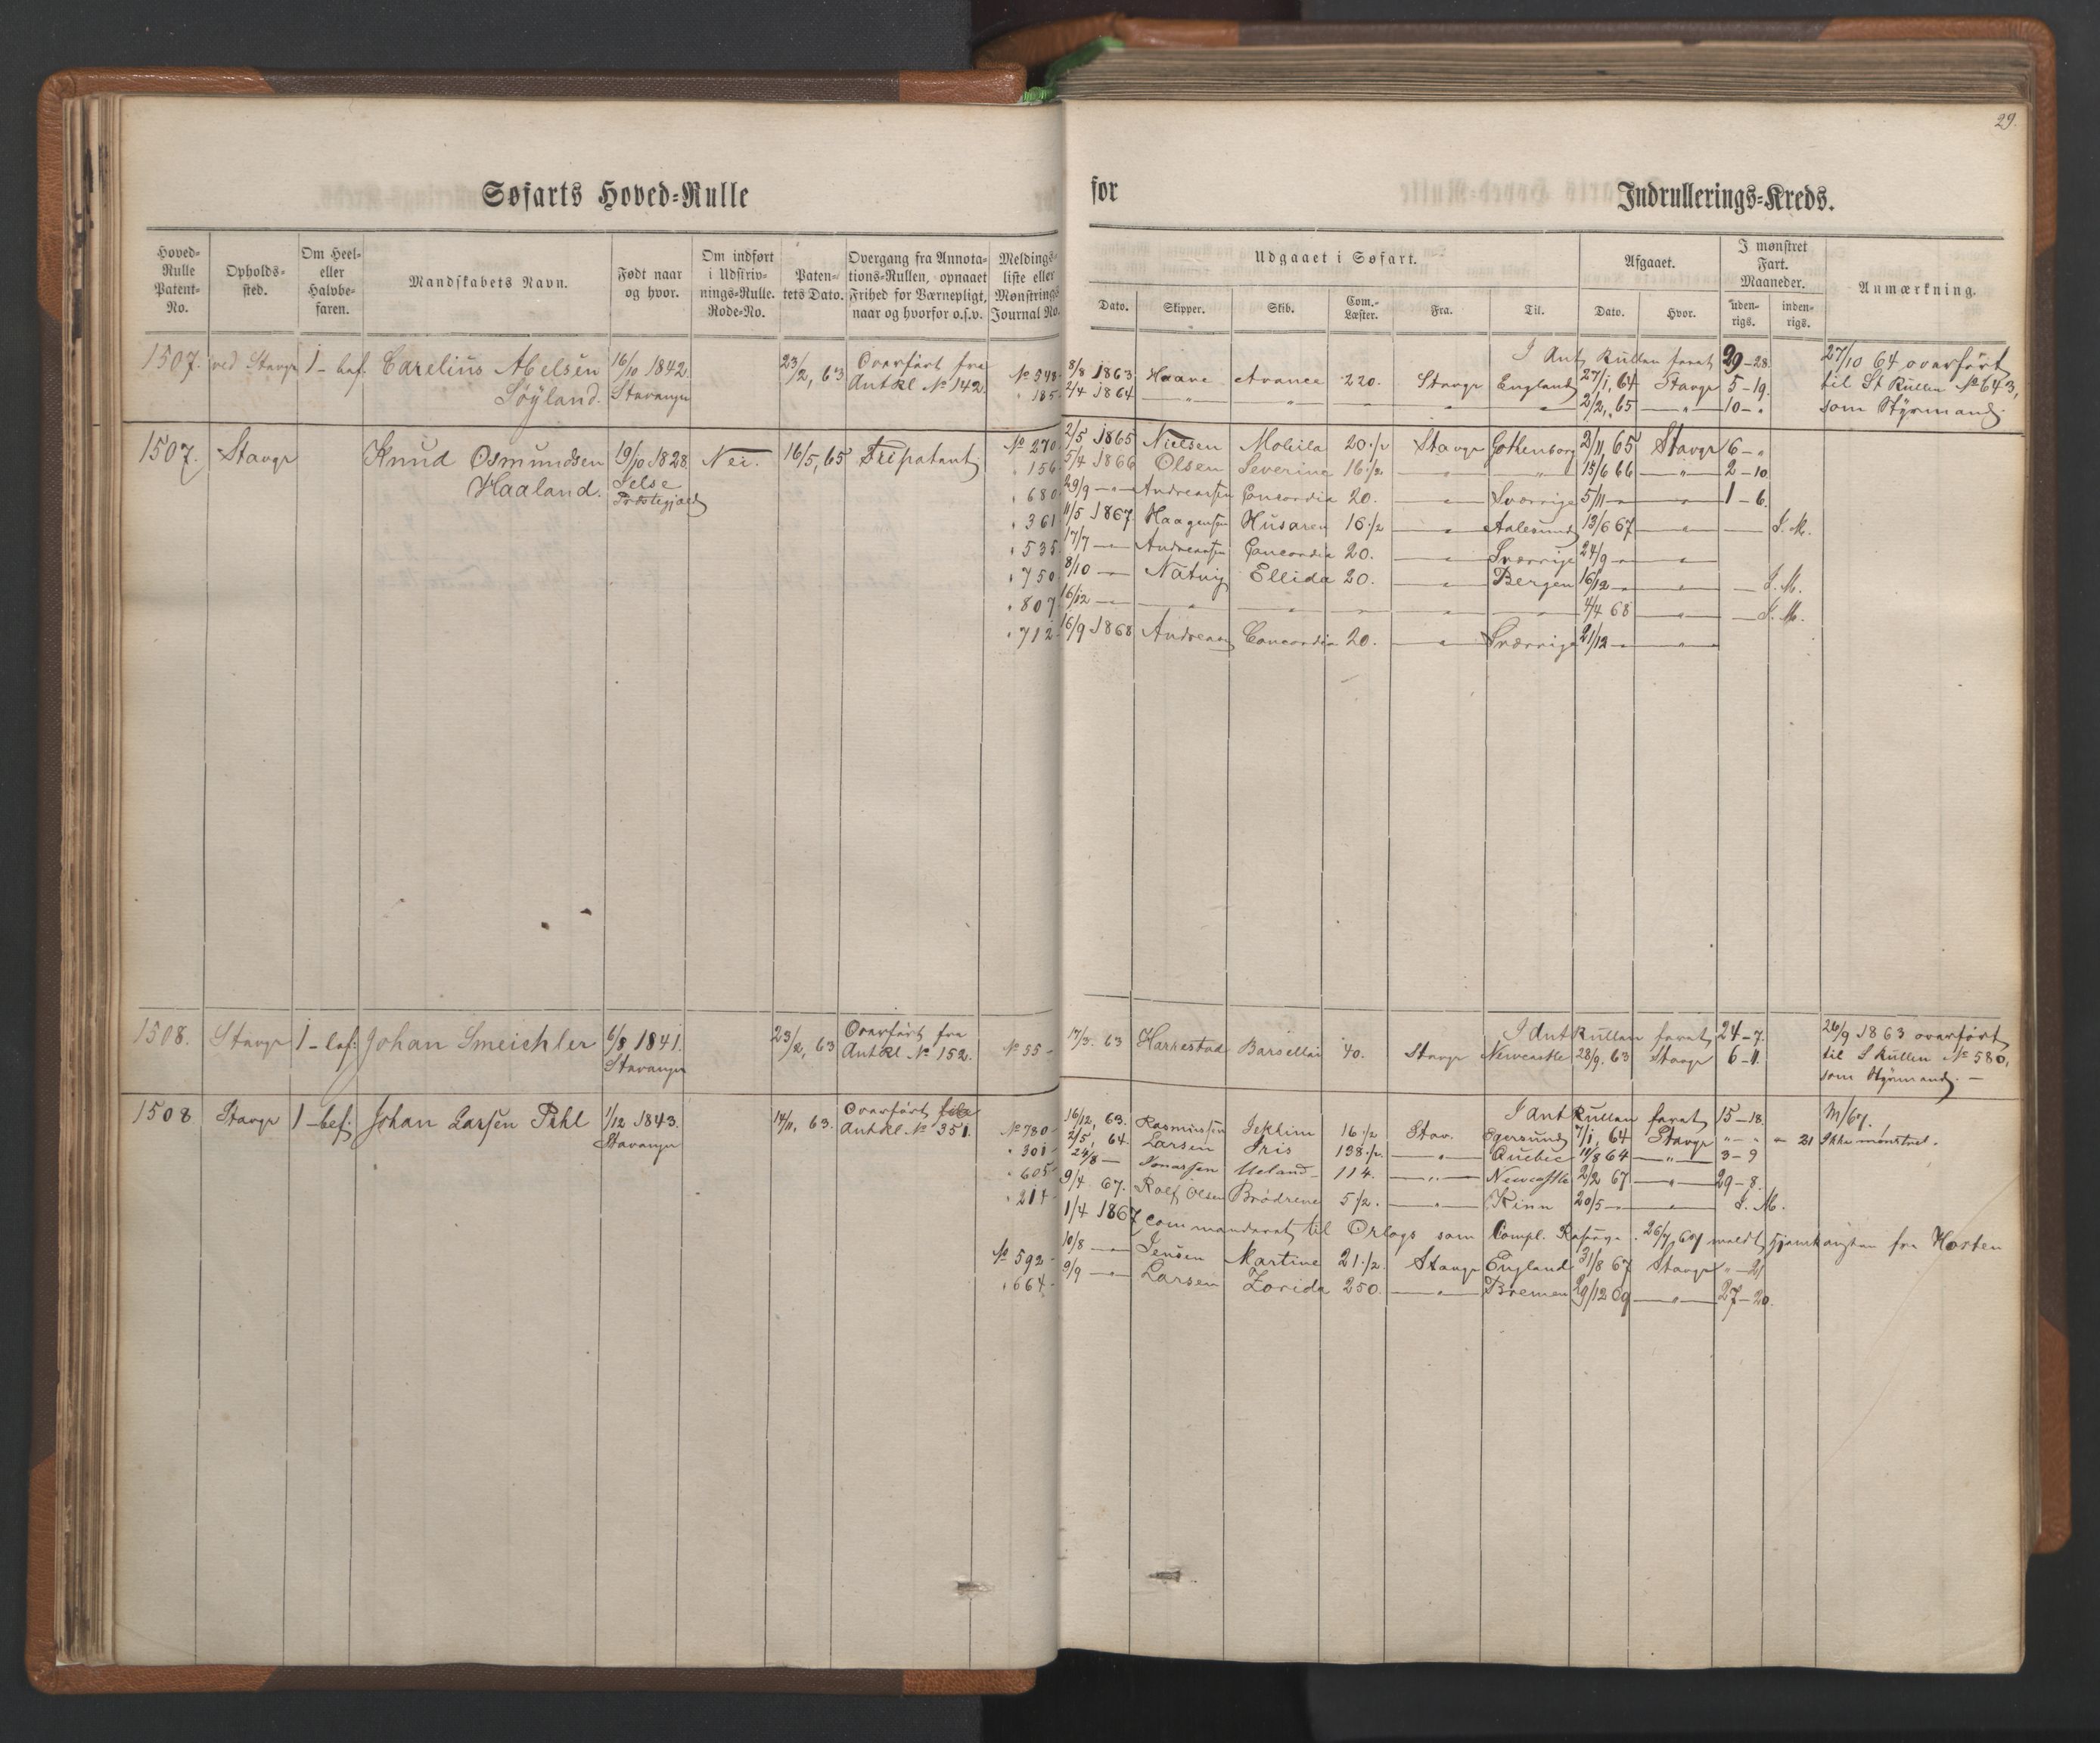 29.
Søfarts Hoved-Rulle for Indrullerings-Kreds.
Hoved-Rulle Patent-No. Opholds-sted. Om Heel- eller Halvbe-faren. Mandskabets Navn. Født naar og hvor. Om indført i Udskriv-nings-Rulle. Rode-No. Paten-tets Dato. Overgang fra Annota-tions-Rullen, opnaaet Frihed for Værnepligt, naar og hvorfor o.s.v. Meldings-liste eller Mønstrings Journal No.
Udgaaet i Søfart. Afgaaet. I mønstret Fart. Maaneder. Anmærkning.
Dato. Skipper. Skib. Com.-Læster. Fra. Til. Dato. Hvor. uden-rigs. inden-rigs.
1507. ved Stavgr 1 - bef. Carelius Abelsen 16/10 1842. 23/2, 63 Overført fra I Ant Rullen faret 29-28. 27/10 64 overført
Søyland. Stavanger Antkl No 142. No 548 8/8 1863 Haave Avance 220. Stavgr England 27/1, 64 Stavgr 5-19. til St Rullen No 643,
" 185 2/4 1864 — " — " — " 2/2, 65 — " — 10 - " som Styrmand.
1507. Stavgr Knud Osmundsen 19/10 1828 Nei. 16/5, 65 Fripatent No 270 2/5 1865 Nielsen 20 1/2 Stavgr Gothenborg 2/11, 65 Stavgr 6 - "
Haaland. Jelse " 156 5/4 1866 Olsen Severine 16 1/2 — " — " 15/6 66 — " — 2 - 10.
Præstegjæld " 680 29/9 — " — Andreassen Concordia 20. — " — Sverrige 5/11 — " — " — 1 - 6.
" 361 11/5 1867 Haagensen Husaren 16 1/2 — " — Aalesund 13/6 67 — " — I. M.
" 535 17/7 — " — Andreassen Concordia 20. — " — Sverrige 24/9 — " — " —
" 750 8/10 — " — Natvig Ellida 20. — " — Bergen 16/12 — " — " — I. M.
" 807 16/12 — " — " — " — " — " — 4/4 68 — " — I. M.
" 712 16/9 1868 Andreasen Concordia 20. — " — Sverrige 21/12 — " — " —
1508. Stavgr 1 - bef: Johan Smeichler 6/8 1841. 23/2, 63 Overført fra I Ant Rullen faret 24-7. 26/9 1863 overført
Stavanger Antkl No 152. No 55 - 17/3. 63 Harkestad 40. Stavgr Newcastle 28/9. 63 Stavgr 6-11. til S Rullen No 580,
som Styrmand. —
1508 Stavgr 1 - bef: Johan Larsen Pihl 1/12 1843. 14/11, 63. Overført I Ant Rullen faret 15-18. M/67.
Stavanger Antkl. No 351. No 780 - 16/12, 63. Rasmussen 16 1/2 Stav. Egersund 7/1, 64 Stavgr " - " - 21 Ikke mønstret.
" 301 - 2/5, 64. Larsen Iris 138 1/2. — " — Quebec 11/8 64 — " — 3 - 9
" 605 - 24/8 — Jonassen Ueland 114. — " — Newcastle 2/2 67. — " — 29 - 8.
" 211 - 9/4 67. Rolf Olsen Brødrene 5 1/2. — " — Kinn 20/5 — " — " — I. M.
1/4 1867 commanderet til Orlogs som Compl. 26/7, 67 meldt hjemkaysten fra Horten
No 592 - 10/8 — " — Jensen Martine 21 1/2. Stavgr England 31/8 67 Stavgr " - 21
" 664 - 9/9 — " — Larsen Zorida 250. — " — Bremen 29/12 69 — " — 27-20.